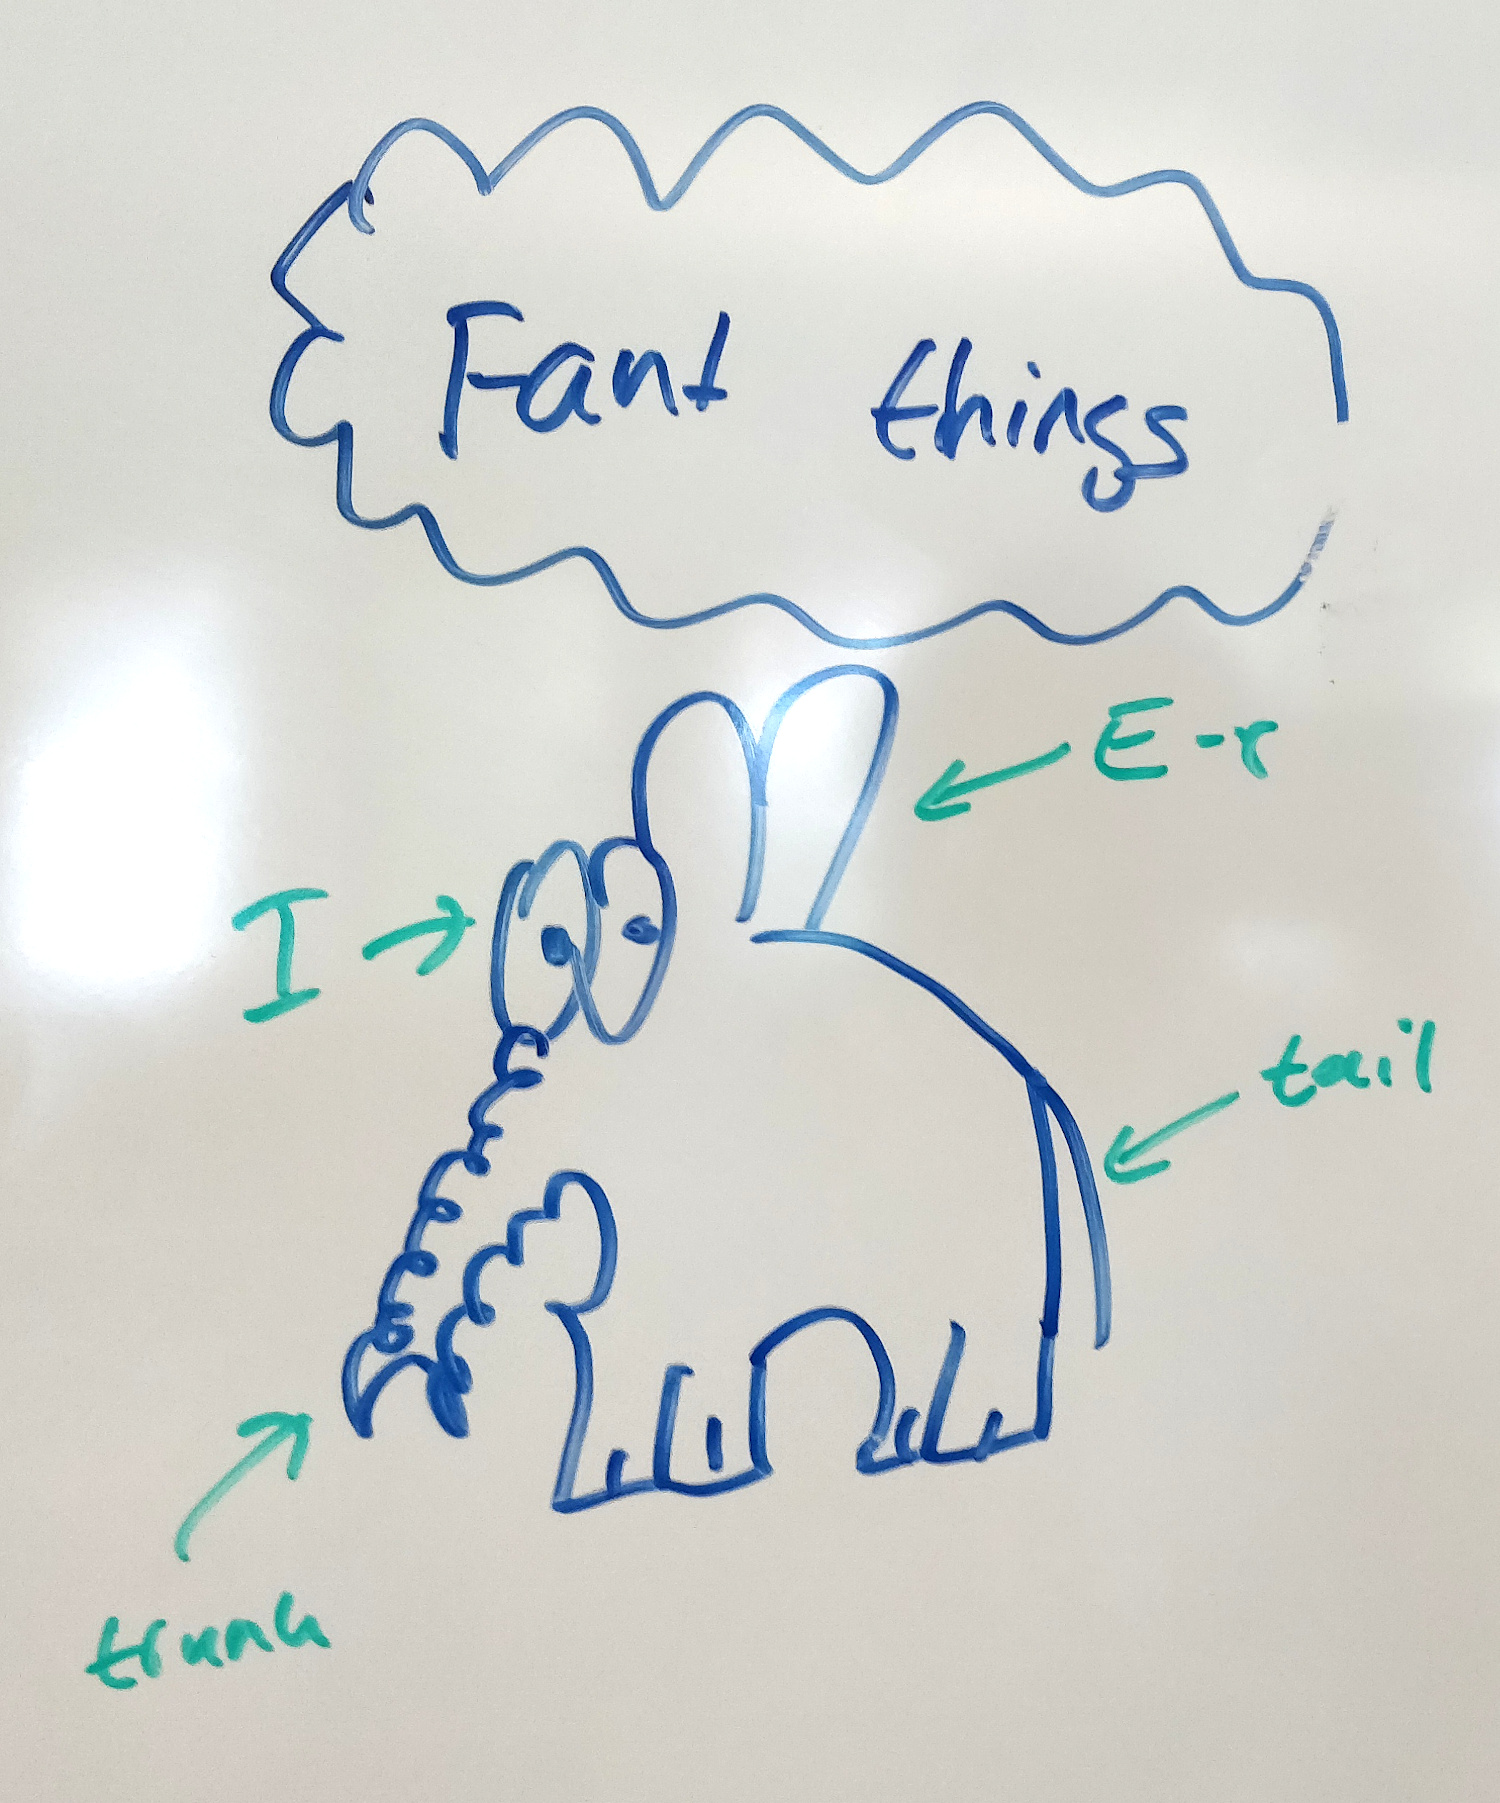 Fant things
E-r
I
tail
trunk